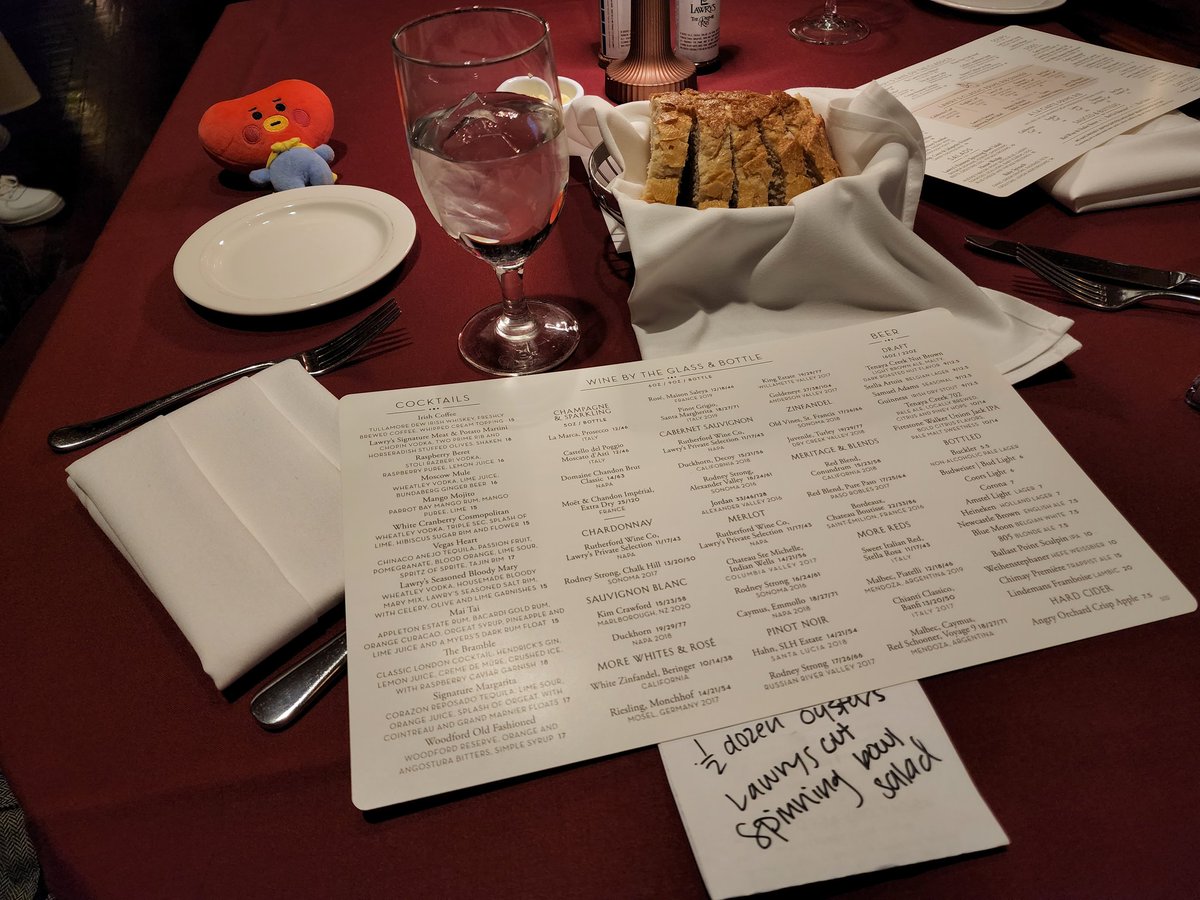 LAWRY'S
COCKTAILS
Irish Coffee
TULLAMORE DEW IRISH WHISKEY, FRESHLY
BREWED COFFEE, WHIPPED CREAM TOPPING 15
Lawry's Signature Meat & Potato Martini
CHOPIN VODKA, TWO PRIME RIB AND
HORSERADISH STUFFED OLIVES, SHAKEN 18
Raspberry Beret
STOLI RAZBERI VODKA,
RASPBERRY PUREE, LEMON JUICE 16
Moscow Mule
WHEATLEY VODKA, LIME JUICE AND
BUNDABERG GINGER BEER 16
Mango Mojito
PARROT BAY MANGO RUM, MANGO
PUREE, LIME 15
White Cranberry Cosmopolitan
WHEATLEY VODKA, TRIPLE SEC, SPLASH OF
LIME, HIBISCUS SUGAR RIM AND FLOWER 15
Vegas Heart
GHIMAGO ANEJO TEQUILA, PASSION FRUIT,
POMEGRANATE, BLOOD ORANGE, LIME SOUR,
SPRITZ OF SPRITE, TAJIN RIM 17
Lawry's Seasoned Bloody Mary
WHEATLEY VODKA, HOUSEMADE BLOODY
MARY MIX, LAWRY'S SEASONED SALT RIM,
WITH CELERY, OLIVE AND LIME GARNISHES 15
Mai Tai
APPLETON ESTATE RUM, BACARDI GOLD RUM,
ORANGE CURACAO, ORGEAT SYRUP, PINEAPPLE AND
LIME JUICE AND A MYERS'S DARK RUM FLOAT 15
The Bramble
CLASSIC LONDON COCKTAIL, HENDRICK'S GIN,
LEMON JUICE, CREME DE MÛRE, CRUSHED ICE,
WITH RASPBERRY CAVIAR GARNISH 18
Signature Margarita
CORAZON REPOSADO TEQUILA, LIME SOUR,
ORANGE JUICE, SPLASH OF ORGEAT, WITH
COINTREAU AND GRAND MARNIER FLOATS 17
Woodford Old Fashioned
WOODFORD RESERVE, ORANGE AND
ANGOSTURA BITTERS, SIMPLE SYRUP 17
WINE BY THE GLASS & BOTTLE
6OZ / 9OZ / BOTTLE
CHAMPAGNE
& SPARKLING
5OZ / BOTTLE
La Marca, Prosecco 12/46
ITALY
Castello del Poggio
Moscato d'Asti 12/46
ITALY
Domaine Chandon Brut
Classic 14/63
NAPA
Moët & Chandon Impérial,
Extra Dry 25/120
FRANCE
CHARDONNAY
Rutherford Wine Co,
Lawry's Private Selection 11/17/43
NAPA
Rodney Strong, Chalk Hill 13/20/50
SONOMA 2017
SAUVIGNON BLANC
Kim Crawford 15/23/58
MARLBOROUGH, NZ 2020
Duckhorn 19/29/77
NAPA 2018
MORE WHITES & ROSÉ
White Zinfandel, Beringer 10/14/38
CALIFORNIA
Riesling, Monchhof 14/21/54
MOSEL, GERMANY 2017
Rosé, Maison Saleya 12/18/46
FRANCE 2019
Pinot Grigio,
Santa Margherita 18/27/71
ITALY 2018
CABERNET SAUVIGNON
Rutherford Wine Co,
Lawry's Private Selection 11/17/43
NAPA
Duckhorn, Decoy 15/21/56
CALIFORNIA 2018
Rodney Strong,
Alexander Valley 16/24/61
SONOMA 2016
Jordan 33/48/128
ALEXANDER VALLEY 2015
MERLOT
Rutherford Wine Co,
Lawry's Private Selection 11/17/43
NAPA
Chateau Ste Michelle,
Indian Wells 14/21/56
COLUMBIA VALLEY 2017
Rodney Strong 16/24/61
SONOMA 2016
Caymus, Emmollo 18/27/71
NAPA 2018
PINOT NOIR
Hahn, SLH Estate 14/21/54
SANTA LUCIA 2018
Rodney Strong 17/26/66
RUSSIAN RIVER VALLEY 2017
King Estate 19/29/77
WILLAMETTE VALLEY 2017
Goldeneye 27/38/104
ANDERSON VALLEY 2017
ZINFANDEL
Old Vines, St. Francis 17/26/66
SONOMA 2017
Juvenile, Turley 19/29/77
DRY CREEK VALLEY 2018
MERITAGE & BLENDS
Red Blend,
Conundrum 15/23/58
CALIFORNIA 2018
Red Blend, Pure Paso 17/25/64
PASO ROBLES 2017
Bordeaux,
Chateau Boutisse 22/31/86
SAINT-ÉMILION, FRANCE 2016
MORE REDS
Sweet Italian Red,
Stella Rosa 11/17/43
ITALY
Malbec, Piatelli 12/18/46
MENDOZA, ARGENTINA 2019
Chianti Classico,
Banfi 13/20/50
ITALY 2017
Malbec, Caymus,
Red Schooner, Voyage 9 18/27/71
MENDOZA, ARGENTINA
BEER
DRAFT
16OZ / 22OZ
Tenaya Creek Nut Brown
LIGHT BROWN ALE, MALTY,
DARK ROASTED NUT FLAVOR 9/12.5
Stella Artois BELGIAN LAGER 9/12.5
Samuel Adams SEASONAL 9/12.5
Guinness IRISH DRY STOUT 9/12.5
Tenaya Creek 702
PALE ALE, LOCALLY BREWED,
CITRUS AND PINEY HOPS 10/14
Firestone Walker Union Jack IPA
BOLD CITRUS FLAVORS,
PALE MALT SWEETNESS 10/14
BOTTLED
Buckler 5.5
NON-ALCOHOLIC PALE LAGER
Budweiser | Bud Light 6
Coors Light 6
Corona 7
Amstel Light LAGER 7
Heineken HOLLAND LAGER 7
Newcastle Brown ENGLISH ALE 7.5
Blue Moon BELGIAN WHITE 7.5
805 BLONDE ALE 7.5
Ballast Point Sculpin IPA 10
Weihenstephaner HEFE WEISSBIER 10
Chimay Première TRAPPIST ALE 15
Lindemans Framboise LAMBIC 20
HARD CIDER
Angry Orchard Crisp Apple 7.5
½ dozen oysters
Lawrys cut
spinning bowl
salad